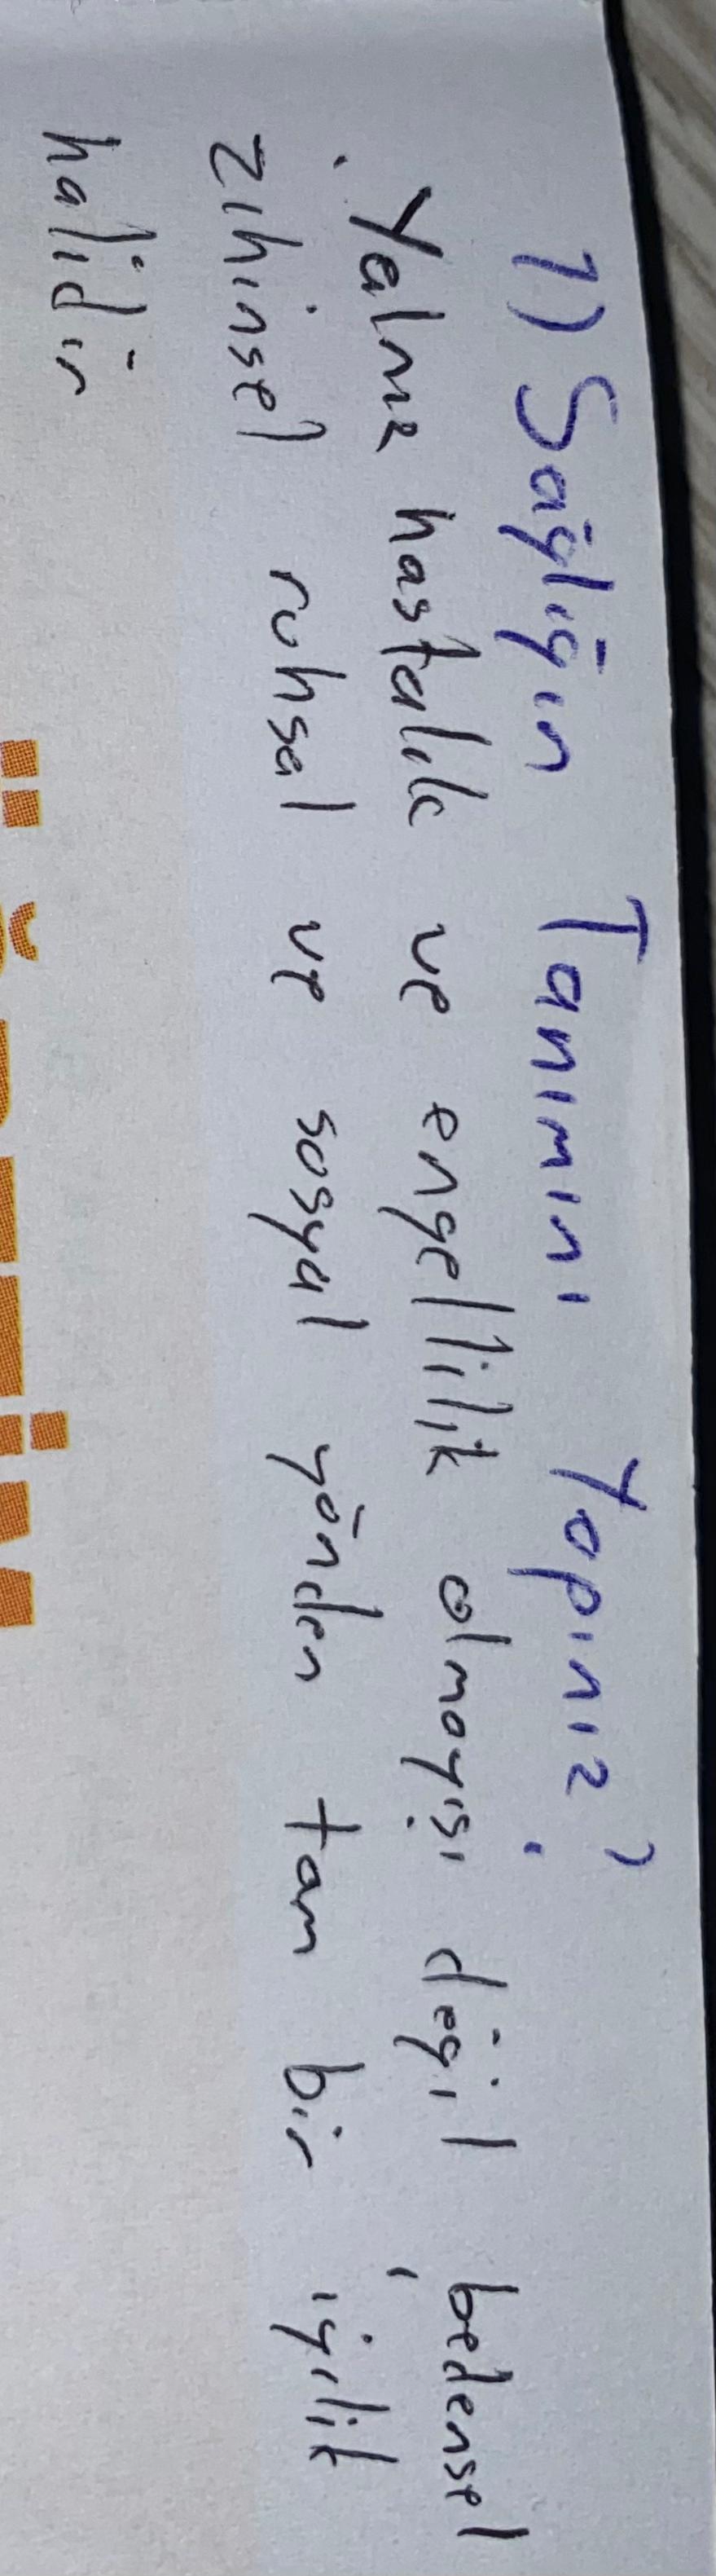 1) Sağlığın Tanımını Yapınız?
Yalnız hastalık ve engellilik olmayışı değil, bedensel
zihinsel ruhsal ve sosyal yönden tam bir iyilik
halidir